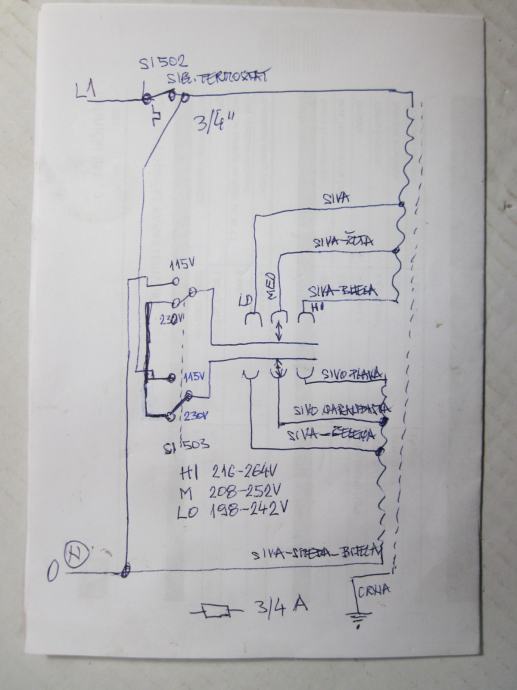 S1502
SIG. TERMOSTAT
L1
3/4"
SIVA
SIVA-ŽUTA
115V
LO
MED
SIVA-BIJELA
HI
230V
SIVO PLAVA
115V
SIVO NARANDASTA
230V
SIVA-ZELENA
S1503
HI 216-264V
M 208-252V
LO 198-242V
SIVA-SMEĐA-BIJELA
0 N
CRNA
3/4 A